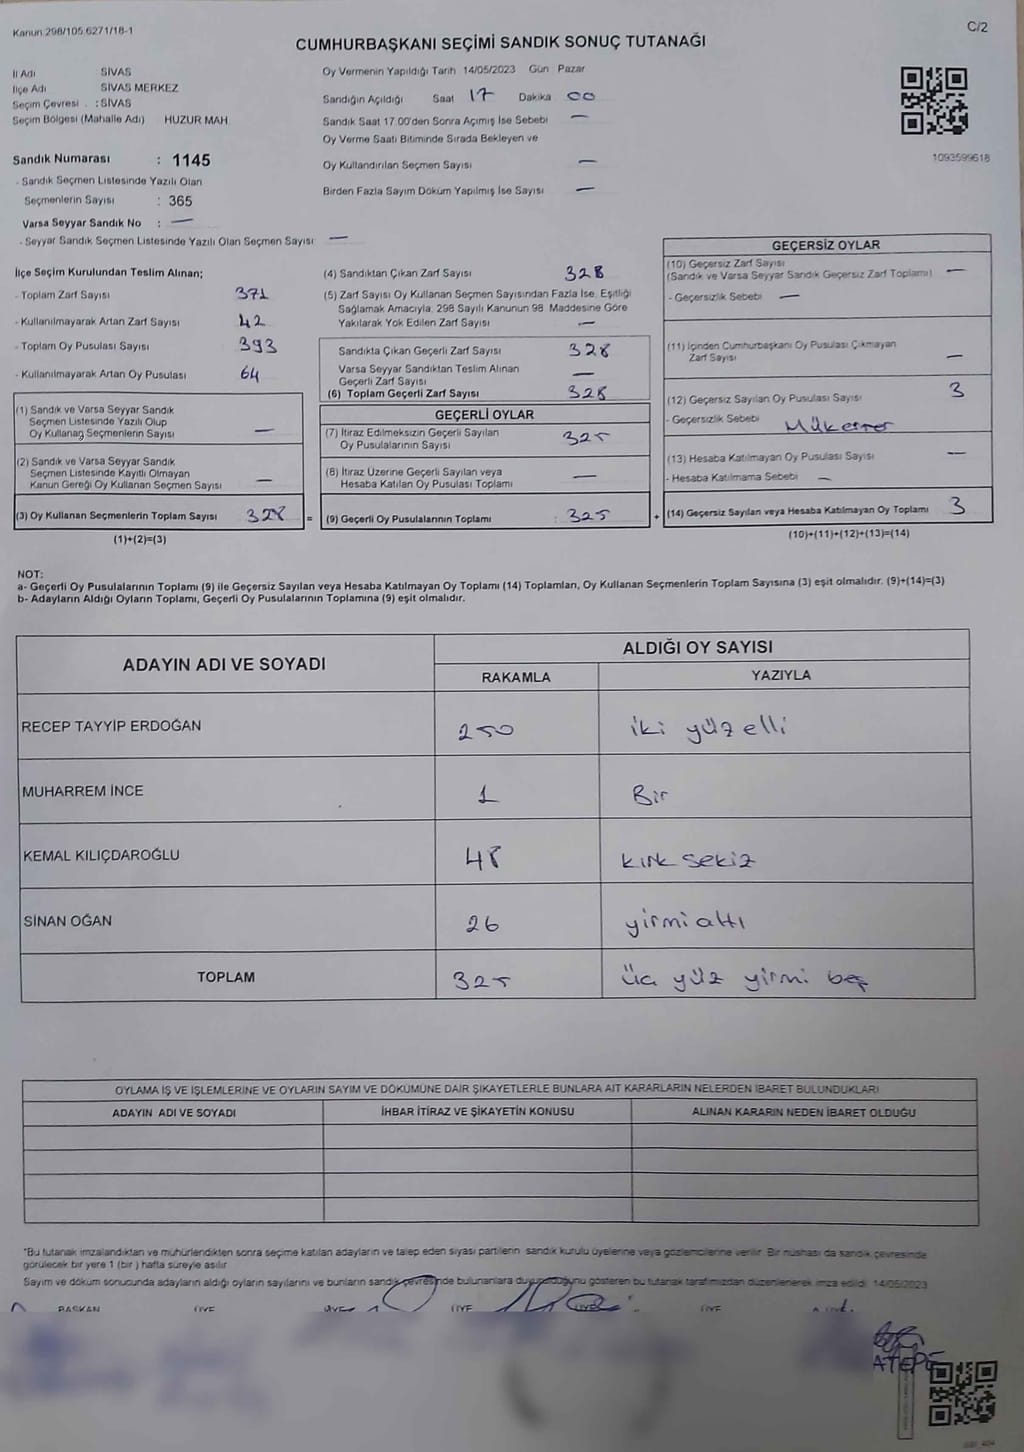 Kanun:298/105,6271/18-1
C/2
CUMHURBAŞKANI SEÇİMİ SANDIK SONUÇ TUTANAĞI
İl Adı SİVAS
İlçe Adı SİVAS MERKEZ
Seçim Çevresi : SİVAS
Seçim Bölgesi (Mahalle Adı) HUZUR MAH
Sandık Numarası : 1145
- Sandık Seçmen Listesinde Yazılı Olan
Seçmenlerin Sayısı : 365
Varsa Seyyar Sandık No : —
- Seyyar Sandık Seçmen Listesinde Yazılı Olan Seçmen Sayısı —
Oy Vermenin Yapıldığı Tarih 14/05/2023 Gün Pazar
Sandığın Açıldığı Saat 17 Dakika 00
Sandık Saat 17.00'den Sonra Açımış İse Sebebi —
Oy Verme Saati Bitiminde Sırada Bekleyen ve
Oy Kullandırılan Seçmen Sayısı —
Birden Fazla Sayım Döküm Yapılmış İse Sayısı —
1093599618
İlçe Seçim Kurulundan Teslim Alınan;
- Toplam Zarf Sayısı 371
- Kullanılmayarak Artan Zarf Sayısı 42
- Toplam Oy Pusulası Sayısı 393
- Kullanılmayarak Artan Oy Pusulası 64
(1) Sandık ve Varsa Seyyar Sandık
Seçmen Listesinde Yazılı Olup
Oy Kullanan Seçmenlerin Sayısı —
(2) Sandık ve Varsa Seyyar Sandık
Seçmen Listesinde Kayıtlı Olmayan
Kanun Gereği Oy Kullanan Seçmen Sayısı —
(3) Oy Kullanan Seçmenlerin Toplam Sayısı 328 =
(1)+(2)=(3)
(4) Sandıktan Çıkan Zarf Sayısı 328
(5) Zarf Sayısı Oy Kullanan Seçmen Sayısından Fazla İse, Eşitliği
Sağlamak Amacıyla, 298 Sayılı Kanunun 98. Maddesine Göre
Yakılarak Yok Edilen Zarf Sayısı —
Sandıkta Çıkan Geçerli Zarf Sayısı 328
Varsa Seyyar Sandıktan Teslim Alınan
Geçerli Zarf Sayısı —
(6) Toplam Geçerli Zarf Sayısı 328
GEÇERLİ OYLAR
(7) İtiraz Edilmeksizin Geçerli Sayılan
Oy Pusulalarının Sayısı 325
(8) İtiraz Üzerine Geçerli Sayılan veya
Hesaba Katılan Oy Pusulası Toplamı —
(9) Geçerli Oy Pusulalarının Toplamı : 325 +
GEÇERSİZ OYLAR
(10) Geçersiz Zarf Sayısı
(Sandık ve Varsa Seyyar Sandık Geçersiz Zarf Toplamı) —
- Geçersizlik Sebebi —
(11) İçinden Cumhurbaşkanı Oy Pusulası Çıkmayan
Zarf Sayısı —
(12) Geçersiz Sayılan Oy Pusulası Sayısı 3
- Geçersizlik Sebebi Mükerrer
(13) Hesaba Katılmayan Oy Pusulası Sayısı —
- Hesaba Katılmama Sebebi —
(14) Geçersiz Sayılan veya Hesaba Katılmayan Oy Toplamı 3
(10)+(11)+(12)+(13)=(14)
NOT:
a- Geçerli Oy Pusulalarının Toplamı (9) ile Geçersiz Sayılan veya Hesaba Katılmayan Oy Toplamı (14) Toplamları, Oy Kullanan Seçmenlerin Toplam Sayısına (3) eşit olmalıdır. (9)+(14)=(3)
b- Adayların Aldığı Oyların Toplamı, Geçerli Oy Pusulalarının Toplamına (9) eşit olmalıdır.
ADAYIN ADI VE SOYADI
ALDIĞI OY SAYISI
RAKAMLA YAZIYLA
RECEP TAYYİP ERDOĞAN 250 iki yüz elli
MUHARREM İNCE 1 Bir
KEMAL KILIÇDAROĞLU 48 kırk sekiz
SİNAN OĞAN 26 yirmi altı
TOPLAM 325 üç yüz yirmi beş
OYLAMA İŞ VE İŞLEMLERİNE VE OYLARIN SAYIM VE DÖKÜMÜNE DAİR ŞİKAYETLERLE BUNLARA AİT KARARLARIN NELERDEN İBARET BULUNDUKLARI
ADAYIN ADI VE SOYADI İHBAR İTİRAZ VE ŞİKAYETİN KONUSU ALINAN KARARIN NEDEN İBARET OLDUĞU
*Bu tutanak imzalandıktan ve mühürlendikten sonra seçime katılan adayların ve talep eden siyasi partilerin sandık kurulu üyelerine veya gözlemcilerine verilir. Bir nüshası da sandık çevresinde
görülecek bir yere 1 (bir) hafta süreyle asılır.
Sayım ve döküm sonucunda adayların aldığı oyların sayılarını ve bunların sandık çevresinde bulunanlara duyurulduğunu gösteren bu tutanak tarafımızdan düzenlenerek imza edildi. 14/05/2023
BAŞKAN ÜYE ÜYE ÜYE ÜYE ÜYE
ATEPE